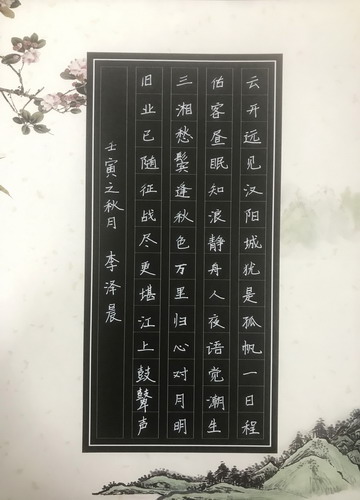 云开远见汉阳城犹是孤帆一日程
估客昼眠知浪静舟人夜语觉潮生
三湘愁鬓逢秋色万里归心对月明
旧业已随征战尽更堪江上鼓鼙声
壬寅之秋月 李泽晨